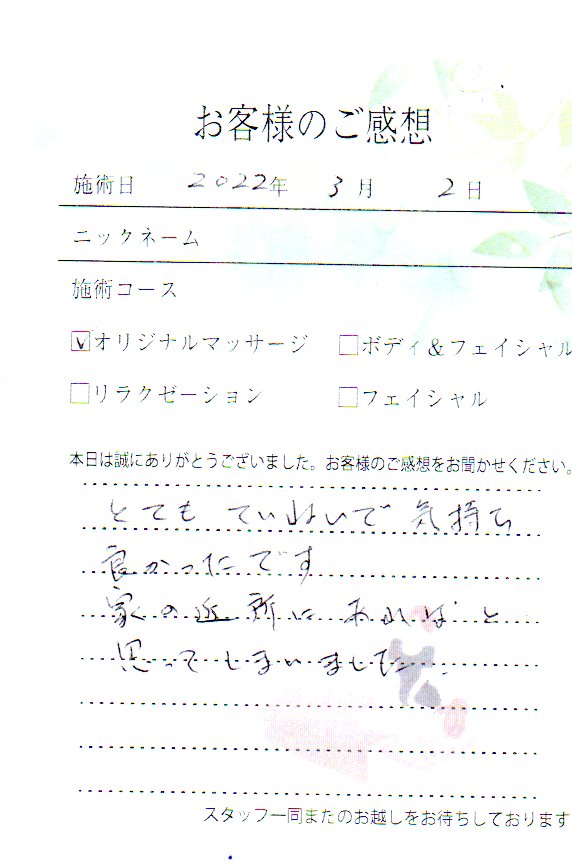 お客様のご感想
施術日 2022年 3月 2日
ニックネーム
施術コース
☑オリジナルマッサージ □ボディ＆フェイシャル
□リラクゼーション □フェイシャル
本日は誠にありがとうございました。お客様のご感想をお聞かせください。
とても ていねいで 気持ち
良かったです
家の近所に あれば と
思ってしまいました…
スタッフ一同またのお越しをお待ちしております